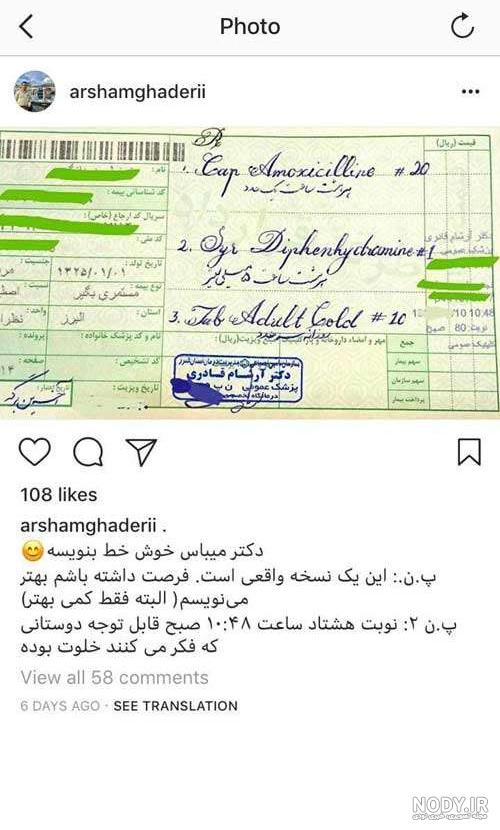 Photo
arshamghaderii
قیمت (ریال)
نام:
کد شناسائی بیمه:
سریال کد ارجاع (خاص):
کد ملی:
تاریخ تولد: ۱۳۲۵/۰۱/۰۱ جنسیت: مر
نوع بیمه: مستمری بگیر
استان: البرز واحد: نظرآ
نام و کد پزشک خانواده: پرونده:
کد تشخیص: صفحه: ۱۴
تاریخ ویزیت: تاریخ اعتبار:
1. Cap Amoxicilline #20
هر هشت ساعت یک عدد
2. Syr Diphenhydramine #1
هر هشت ساعت ۵ سی سی
3. Tab Adult Cold #20
مهر و امضاء داروخانه و
ویزیت (ریال):
دکتر آرشام قادری
پزشک عمومی
دکتر آرشام قادری
10:48
نوبت: 80 صبح
جمع
سهم بیمار
سهم سازمان
پرداخت بیمار
108 likes
arshamghaderii .
دکتر میباس خوش خط بنویسه😊
پ.ن.: این یک نسخه واقعی است. فرصت داشته باشم بهتر
می‌نویسم( البته فقط کمی بهتر)
پ.ن ۲: نوبت هشتاد ساعت ۱۰:۴۸ صبح قابل توجه دوستانی
که فکر می کنند خلوت بوده
View all 58 comments
6 DAYS AGO · SEE TRANSLATION
NODY.IR